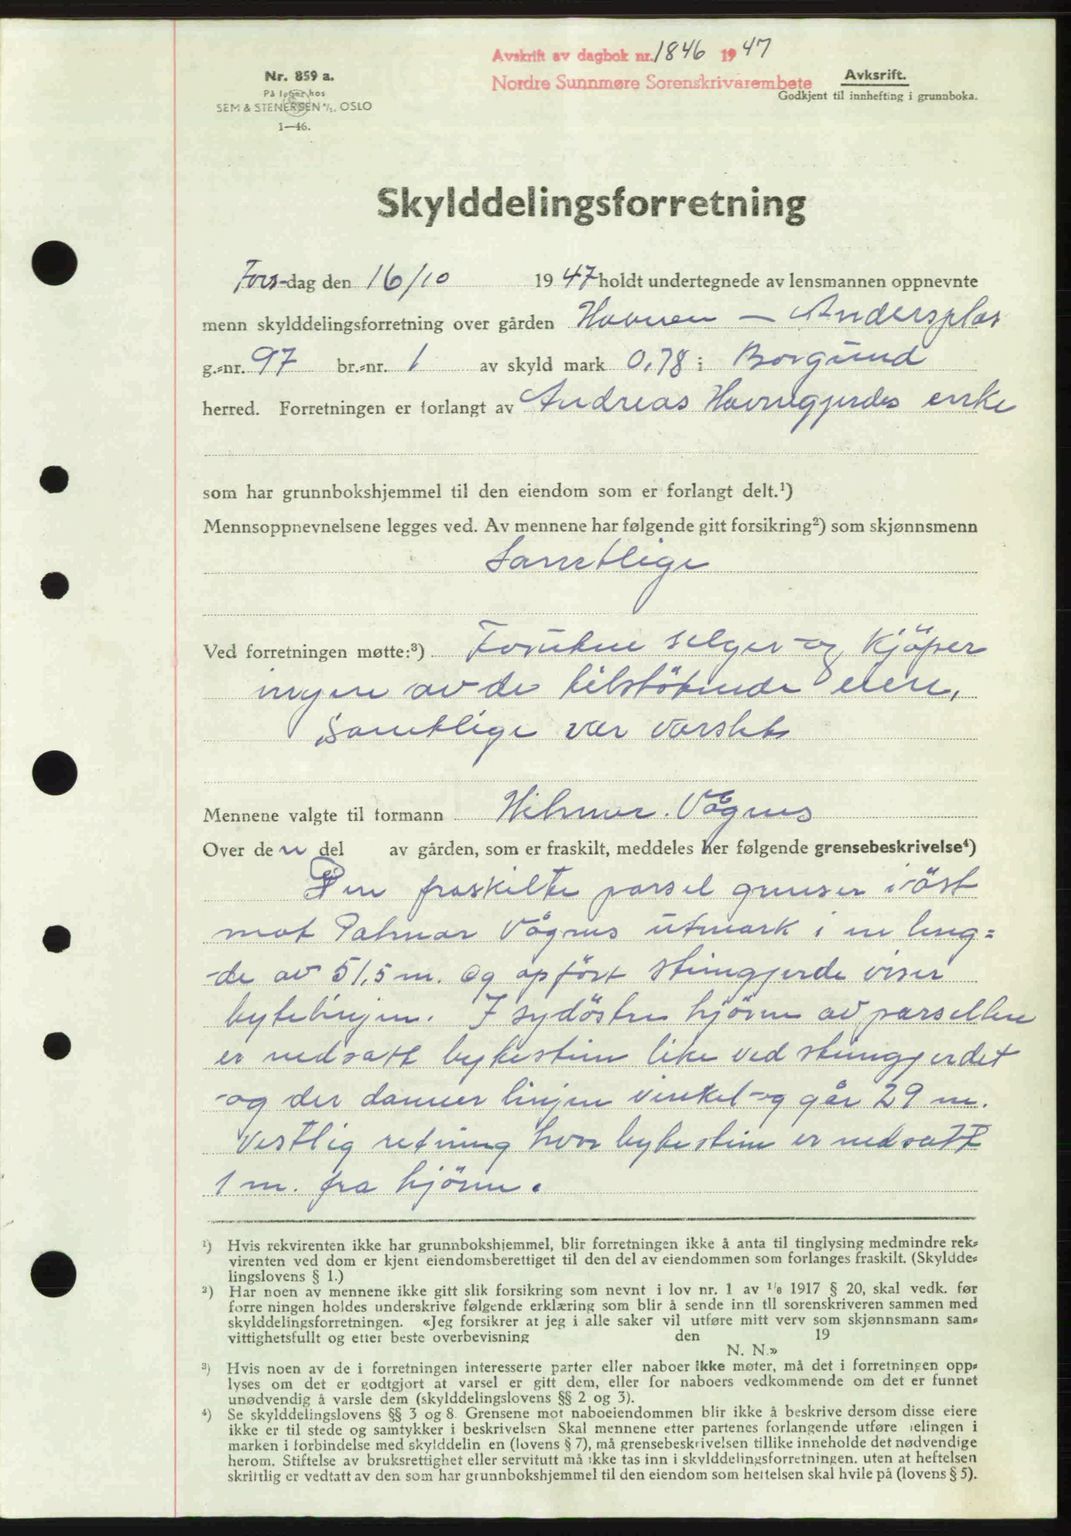 Avskrift av dagbok nr. 1846 1947
Nordre Sunnmøre Sorenskrivarembete
Nr. 859 a.
På lager hos
SEM & STENERSEN A/S. OSLO
1—46.
Avksrift.
Godkjent til innhefting i grunnboka.
Skylddelingsforretning
Tors-dag den 16/10 1947 holdt undertegnede av lensmannen oppnevnte
menn skylddelingsforretning over gården Havnen - Andersplas
g.-nr. 97 br.-nr. 1 av skyld mark 0,78 i Borgund
herred. Forretningen er forlangt av Andreas Havnegjerdes enke
som har grunnbokshjemmel til den eiendom som er forlangt delt.¹)
Mennsoppnevnelsene legges ved. Av mennene har følgende gitt forsikring²) som skjønnsmenn
Samtlige
Ved forretningen møtte:³) Foruten selger og kjöper
ingen av de tilstötende eiere,
Samtlige var varslet
Mennene valgte til formann Hilmar Vågnes
Over den del av gården, som er fraskilt, meddeles her følgende grensebeskrivelse⁴)
Den fraskilte parsel grenser i öst
mot Palmar Vågnes utmark i en leng=
de av 51,5 m. og opfört steingjerde viser
bytelinjen. I sydöstre hjörne av parsellen
er nedsatt bytestein like ved steingjerdet
og der danner linjen vinkel og går 29 m.
Vestlig retning hvor bytestein er nedsatt
1 m. fra hjörne.
¹) Hvis rekvirenten ikke har grunnbokshjemmel, blir forretningen ikke å anta til tinglysing medmindre rek-
virenten ved dom er kjent eiendomsberettiget til den del av eiendommen som forlanges fraskilt. (Skyldde-
lingslovens § 1.)
²) Har noen av mennene ikke gitt slik forsikring som nevnt i lov nr. 1 av 1/6 1917 § 20, skal vedk. før
forre ningen holdes underskrive følgende erklæring som blir å sende inn til sorenskriveren sammen med
skylddelingsforretningen. «Jeg forsikrer at jeg i alle saker vil utføre mitt verv som skjønnsmann sam-
vittighetsfullt og etter beste overbevisning den 19
N. N.»
³) Hvis noen av de i forretningen interesserte parter eller naboer ikke møter, må det i forretningen opp-
lyses om det er godtgjort at varsel er gitt dem, eller for naboers vedkommende om det er funnet
unødvendig å varsle dem (skylddelingslovens §§ 2 og 3).
⁴) Se skylddelingslovens §§ 3 og 8. Grensene mot naboeiendommen blir ikke å beskrive dersom disse eiere
ikke er til stede og samtykker i beskrivelsen Skal mennene etter partenes forlangende utføre delingen i
marken i forbindelse med skylddelin en (lovens § 7), må grensebeskrivelsen tillike inneholde det nødvendige
herom. Stiftelse av bruksrettighet eller servitutt må ikke tas inn i skylddelingsforretningen. uten at heftelsen
skriftlig er vedtatt av den som har grunnbokshjemmel til den eiendom som heftelsen skal hvile på (lovens § 5).